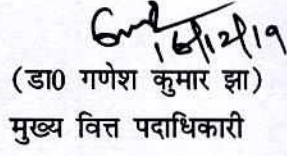 16/12/19
(डा0 गणेश कुमार झा)
मुख्य वित्त पदाधिकारी